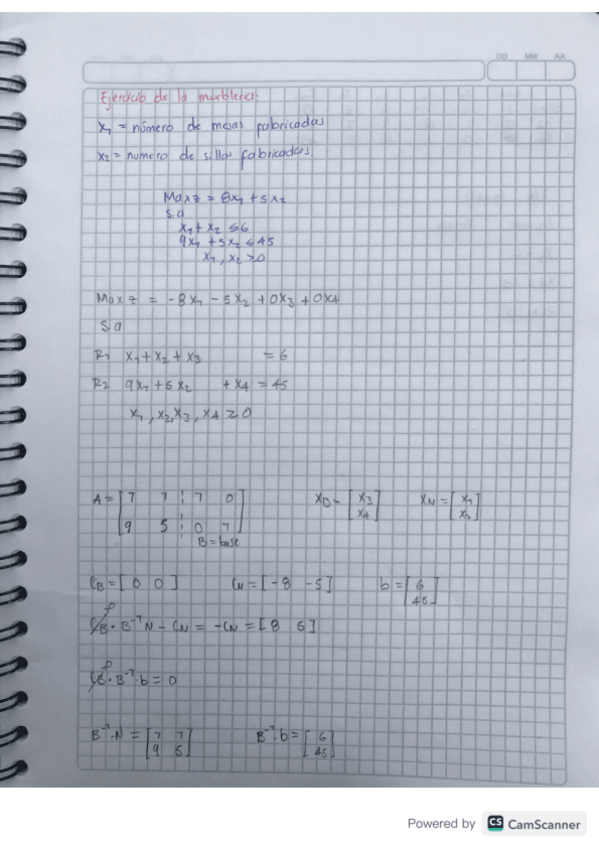 DD MM AA
Ejercicio de la muebleria:
x₁ = número de mesas fabricadas
x₂ = numero de sillas fabricadas
Max z = 8x₁ + 5x₂
s.a
x₁ + x₂ ≤ 6
9x₁ + 5x₂ ≤ 45
x₁, x₂ > 0
Max z = -8x₁ - 5x₂ + 0x₃ + 0x₄
S.a
R₁ x₁ + x₂ + x₃ = 6
R₂ 9x₁ + 5x₂ + x₄ = 45
x₁, x₂, x₃, x₄ ≥ 0
A = [1 1 ¦ 1 0] X_B = [x₃] X_N = [x₁]
[9 5 ¦ 0 1] [x₄] [x₂]
B = base
C_B = [0 0] C_N = [-8 -5] b = [6]
[45]
C_B · B⁻¹N - C_N = -C_N = [8 5]
· B⁻¹ · b = 0
B⁻¹·N = [1 1] B⁻¹·b = [6]
[9 5] [45]
Powered by CS CamScanner